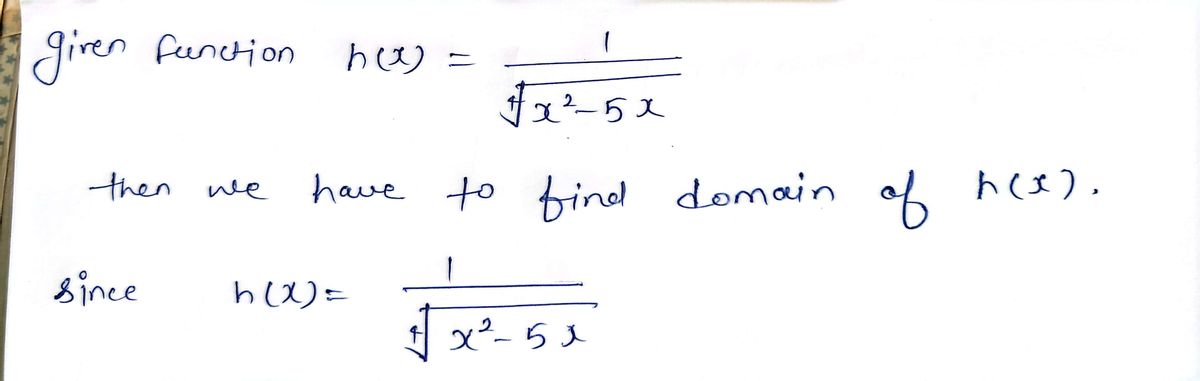 given function h(x) = 1 / ∜(x²-5x)
then we have to find domain of h(x).
since h(x) = 1 / ∜(x²-5x)